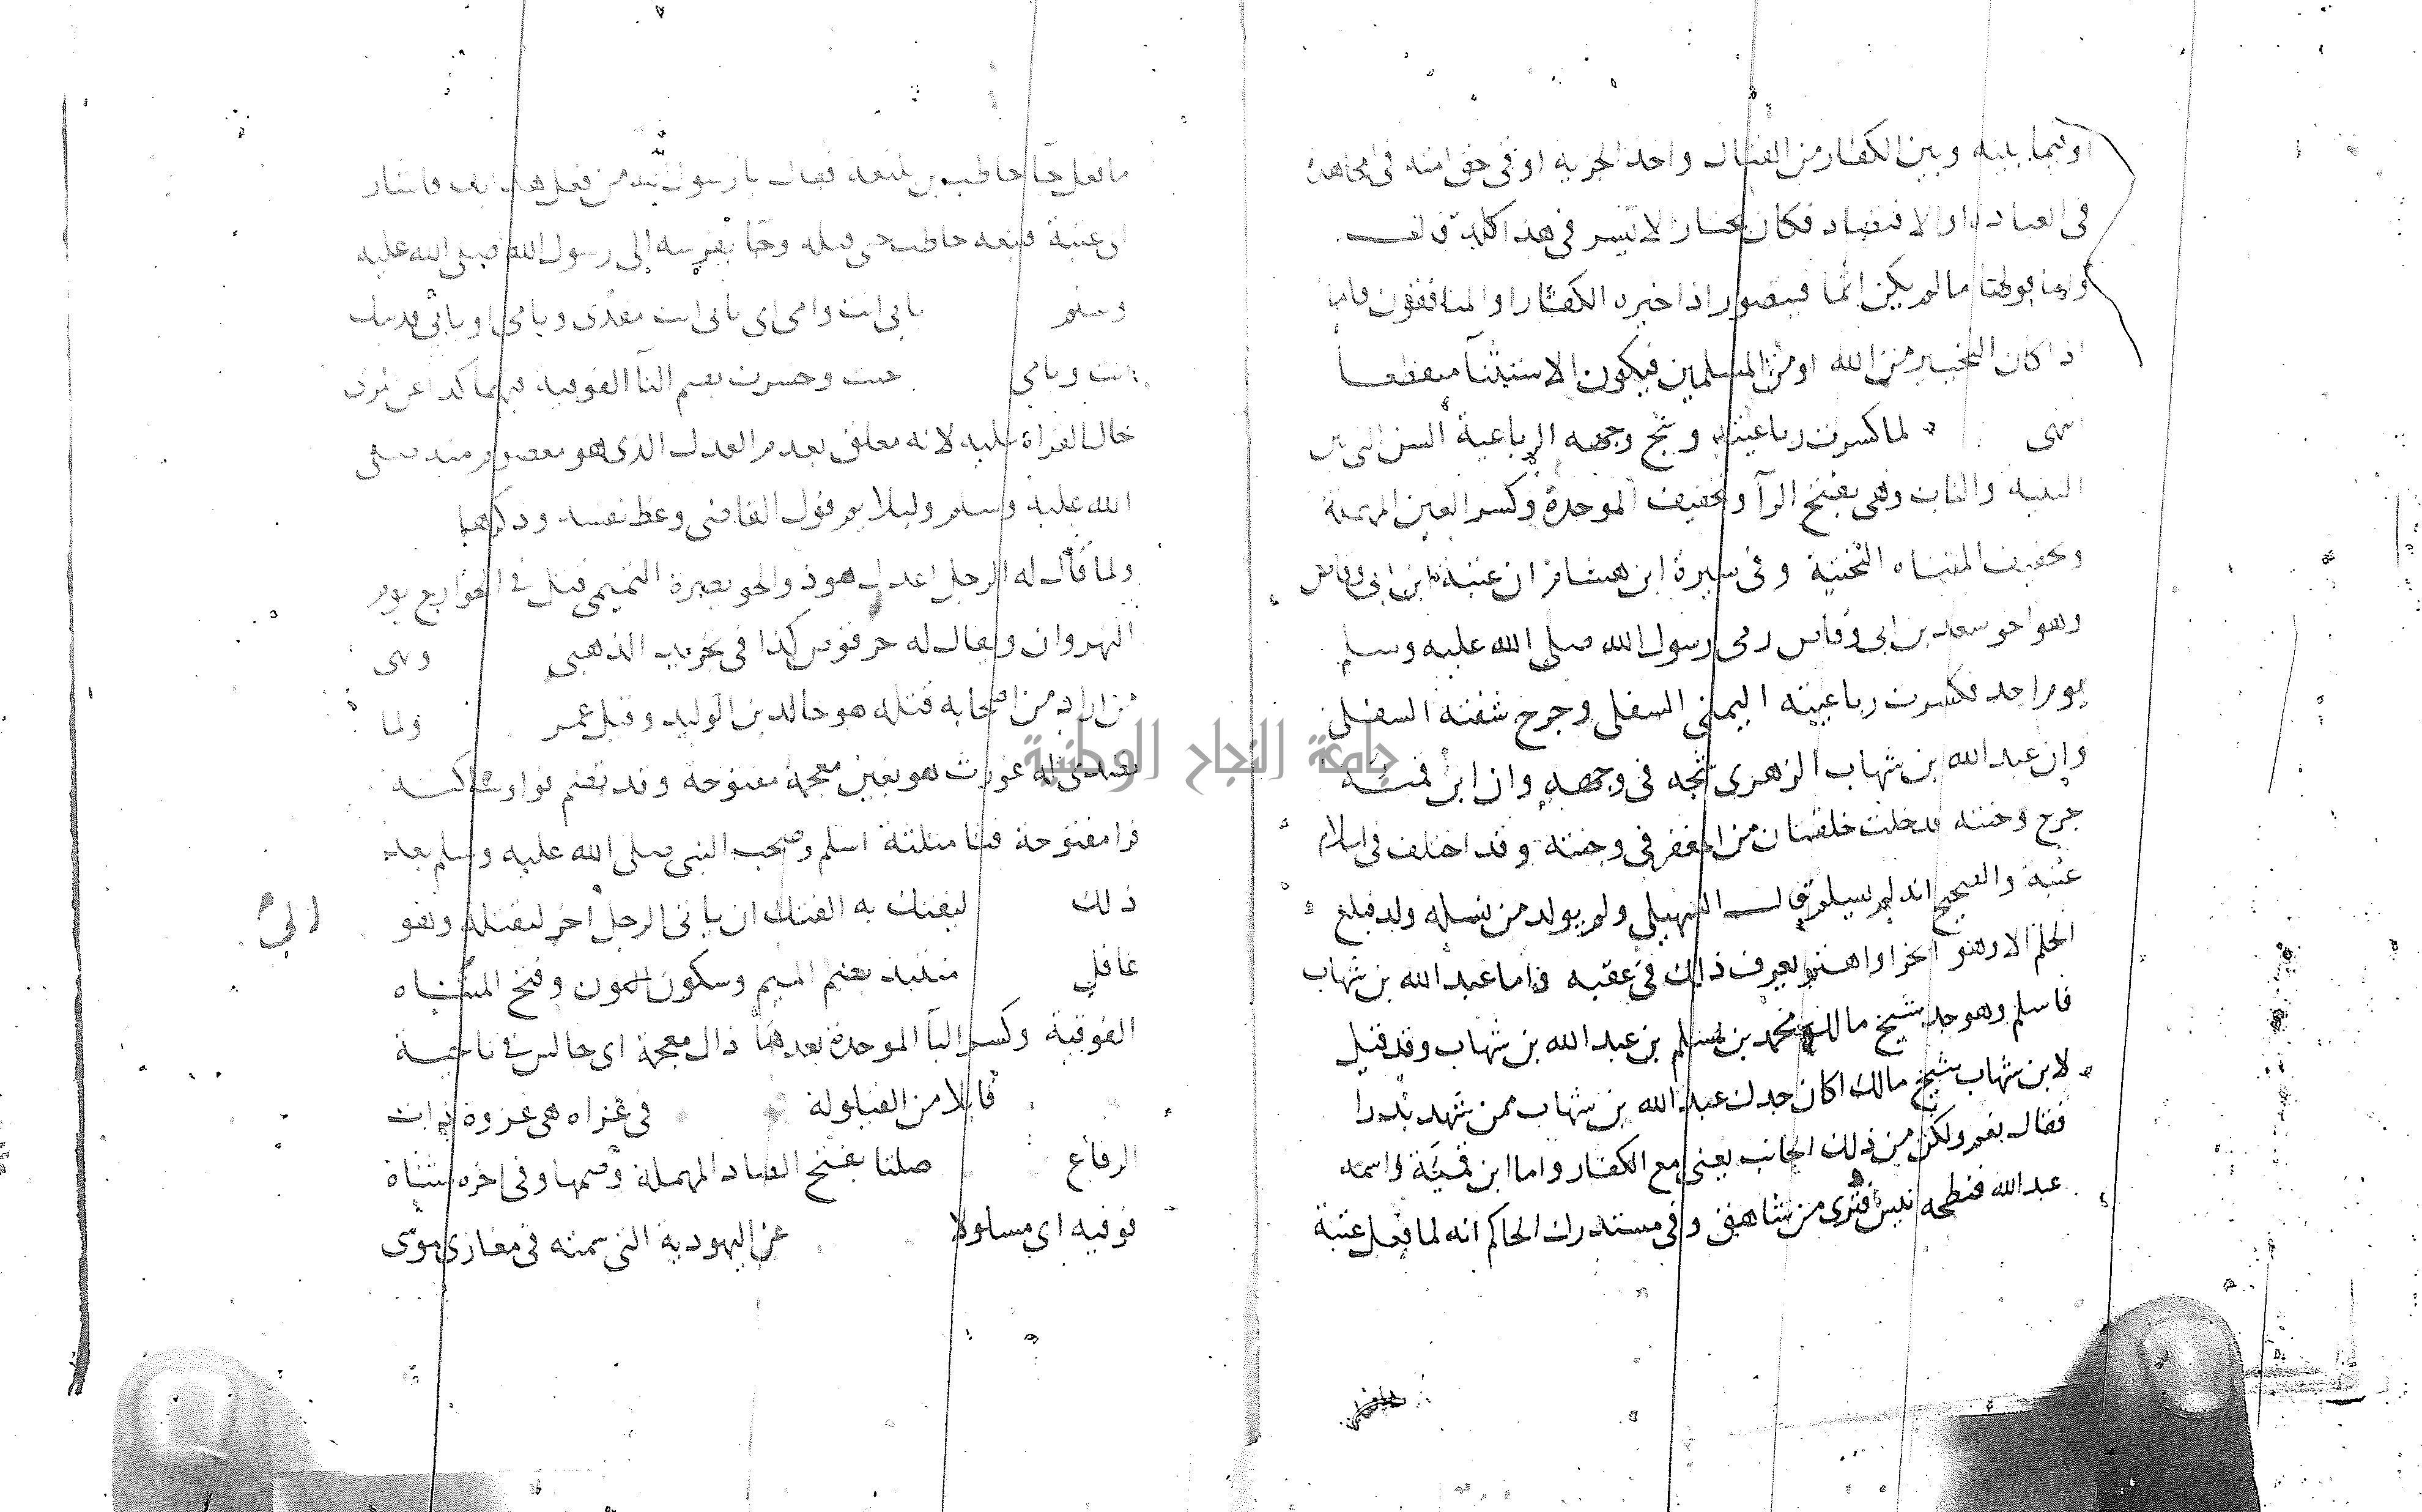 او فيما بينه وبين الكفار من القتال واخذ الجزيه او في حق امته في المجاهدة
في العباده او الاقتصاد فكان يختار الايسر في هذا كله قالـــ
واما قولها ما لم يكن اثما فيتصور اذا خيره الكفار او المنافقون فاما
اذا كان التخيير من الله او من المسلمين فيكون الاستثنآ منقطعا
انتهى لما كسرت رباعيته وشج وجهه الرباعية السن التي بين
الثنيه والناب وهي بفتح الرآ وتخفيف الموحدة وكسر العين المهملة
وتخفيف المثناه التحتية وفي سيرة ابن هشام ان عتبة ابن ابي وقاص
وهو اخو سعد بن ابي وقاص رمى رسول الله صلى الله عليه وسلم
يوم احد فكسرت رباعيته اليمنى السفلى وجرح شفته السفلى
وان عبد الله بن شهاب الزهري شجه في وجهه وان ابن قمئة
جرح وجنته فدخلت حلقتان من المغفر في وجنته وقد اختلف في اسلام
عتبة والصحيح انه لم يسلم قالـــ السهيلي ولم يولد من نسله ولد فبلغ
الحلم الا وهو ابخر او اهتم يعرف ذلك في عقبه واما عبد الله بن شهاب
فاسلم وهو جد شيخ مالك محمد بن مسلم بن عبد الله بن شهاب وقد قيل
لابن شهاب شيخ مالك اكان جدك عبد الله بن شهاب ممن شهد بدرا
فقال نعم ولكن من ذلك الجانب يعني مع الكفار واما ابن قمئة واسمه
عبد الله فنطحه تيس فتردى من شاهق وفي مستدرك الحاكم انه لما فعل عتبة
ما فعل جآ حاطب بن بلتعه فقال يا رسول الله من فعل هذا بك فاشار
الى عتبة فتبعه حاطب حتى قتله وجآ بفرسه الى رسول الله صلى الله عليه
وسلم بابي انت وامي اي بابي انت مفدى وبامي او بابي فديتك
انت وبامي خبت وخسرت بضم التآ الفوقيه فيهما
الله عليه وسلم وليلايم قول القاضي وعظ نفسه وذكرها
ولما قال له الرجل اعدل هو ذو الخويصرة التميمي قتل في الخوارج يوم
النهروان ويقال له حرقوص كذا في تجريد الذهبي ونهى
من اراد من اصحابه قتله هو خالد بن الوليد وقيل عمر ولما
تصدى له غورث هو بغين معجمة مفتوحة وقد تضم فواو ساكنــه
فرا مفتوحة فثا مثلثة اسلم وصحب النبي صلى الله عليه وسلم بعد
ذلك ليفتك به الفتك ان ياتي الرجل آخر ليقتله وهو
غافل منتبذ بضم الميم وسكون النون وفتح المثناه
الفوقية وكسر البآ الموحدة بعدها ذال معجمة اي جالس في ناحية
قايلا من القيلولة في غزاه هي غزوة ذات
الرقاع صلتا بفتح الصاد المهملة وضمها وفي اخره مثناة
فوقيه اي مسلولا عن اليهودية التي سمته في مغازي موسى
جامعة النجاح الوطنية